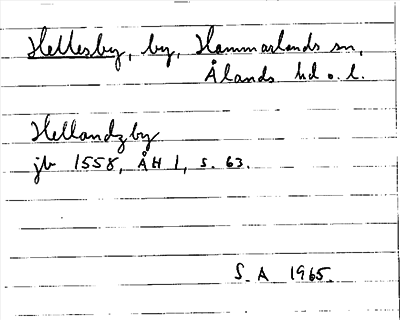 Hellesby, by, Hammarlands sn,
Ålands hd o. l.
Hellandzby
jb 1558, ÅH 1, s. 63.
S. A 1965.